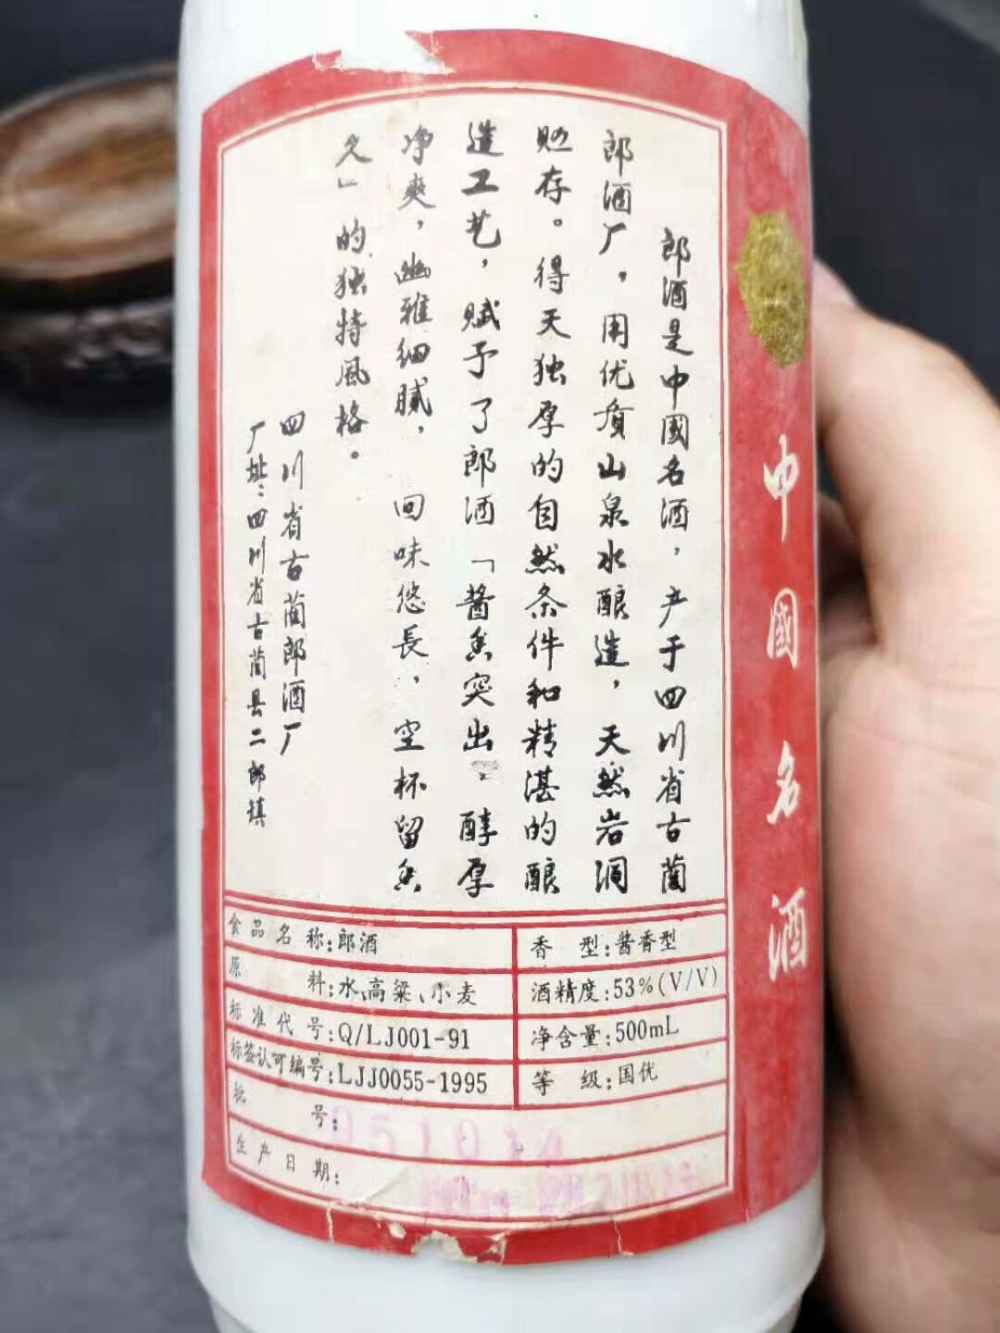 郎酒是中國名酒，产于四川省古蔺
郎酒厂，用优质山泉水酿造，天然岩洞
贮存。得天独厚的自然条件和精湛的酿
造工艺，赋予了郎酒「酱香突出，醇厚
净爽，幽雅细腻，回味悠長，空杯留香
久」的独特風格。
四川省古蔺郎酒厂
厂址：四川省古蔺县二郎镇
中國名酒
食品名称:郎酒
香型:酱香型
原料:水、高粱、小麦
酒精度:53%(V/V)
标准代号:Q/LJ001-91
净含量:500mL
标签认可编号:LJJ0055-1995
等级:国优
批号:
生产日期: